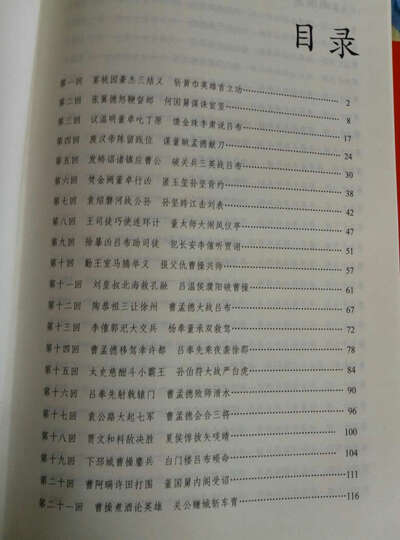 目录
第一回 宴桃园豪杰三结义 斩黄巾英雄首立功 2
第二回 张翼德怒鞭督邮 何国舅谋诛宦竖 8
第三回 议温明董卓叱丁原 馈金珠李肃说吕布 17
第四回 废汉帝陈留践位 谋董贼孟德献刀 24
第五回 发矫诏诸镇应曹公 破关兵三英战吕布 30
第六回 焚金阙董卓行凶 匿玉玺孙坚背约 38
第七回 袁绍磐河战公孙 孙坚跨江击刘表 42
第八回 王司徒巧使连环计 董太师大闹凤仪亭 47
第九回 除暴凶吕布助司徒 犯长安李傕听贾诩 51
第十回 勤王室马腾举义 报父仇曹操兴师 57
第十一回 刘皇叔北海救孔融 吕温侯濮阳破曹操 61
第十二回 陶恭祖三让徐州 曹孟德大战吕布 67
第十三回 李傕郭汜大交兵 杨奉董承双救驾 72
第十四回 曹孟德移驾幸许都 吕奉先乘夜袭徐郡 78
第十五回 太史慈酣斗小霸王 孙伯符大战严白虎 84
第十六回 吕奉先射戟辕门 曹孟德败师淯水 90
第十七回 袁公路大起七军 曹孟德会合三将 96
第十八回 贾文和料敌决胜 夏侯惇拔矢啖睛 100
第十九回 下邳城曹操鏖兵 白门楼吕布殒命 104
第二十回 曹阿瞒许田打围 董国舅内阁受诏 111
第二十一回 曹操煮酒论英雄 关公赚城斩车胄 116